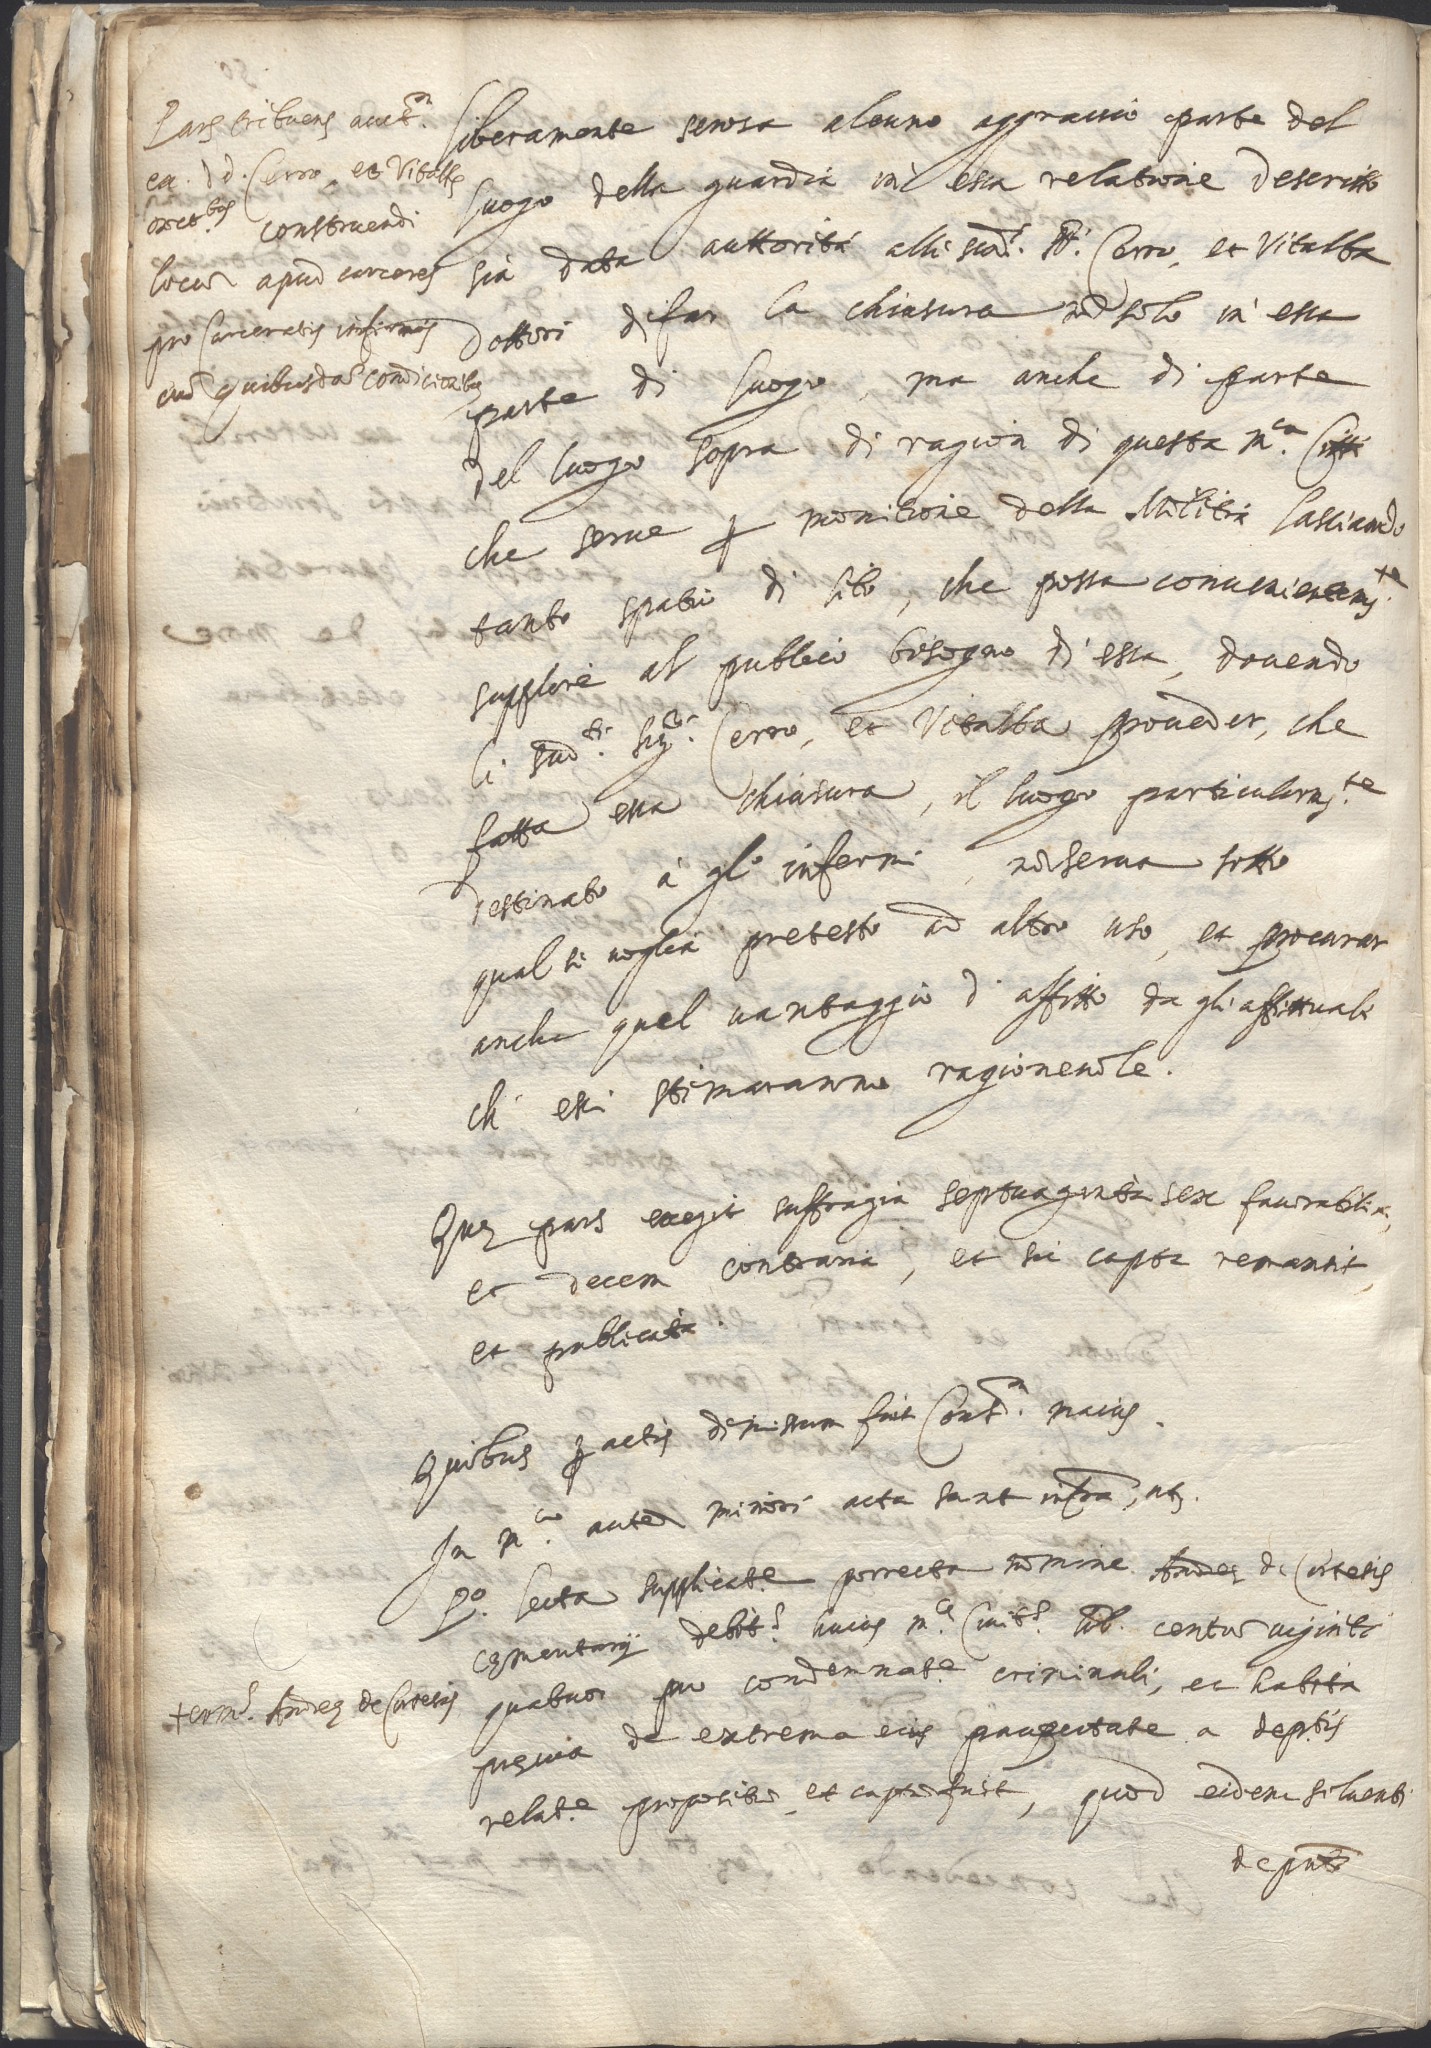 Pars tribuens auct.m
ex. dd. Cerro, et Vitalba
construendi
locum apud carceres
pro carceratis infirmis
cum quibusdam condicionibus
liberamente senza alcuno aggrauio parte del
luogo della guardia in essa relatione descritto
sia data auttorità alli sud.i SS.i Cerro, et Vitalba
Dottori di far la chiusura nõ solo in essa
parte di luogo, ma anche di parte
del luogo sopra di ragion di questa m.ca Città
che serue ꝑ monitione della Militia lasciando
tanto spatio di sito, che possa conuenientem.te
supplire al publico bisogno di essa, douendo
li sud.ti Sig.ri Cerro, et Vitalba proueder, che
fatta essa chiusura, il luogo particularm.te
destinato à gl'infermi, nõ serua sotto
qual si uoglia pretesto ad altro uso, et procurar
anche quel uantaggio d'affitto da gli affittuali
ch'essi stimaranno ragioneuole.
Quę pars exegit suffragia septuaginta sex fauorabilia,
et decem contraria, et sic capta remansit,
et publicata.
Quibus ꝑactis dimissum fuit Cons.m maius.
In m.co autem minori acta sunt infra, ut.
P.o lecta supplicat.e porrecta nomine Andreę de Cortesis
cęmentarij debit.s huius m.cę Ciuit.s lib. centum uiginti
quatuor pro condemnat.e criminali, et habita
termi.s Andreę de Cortesis
pręuia de extrema eius paupertate a dep.tis
relat.e propositum, et captum fuit, quod eidem soluenti